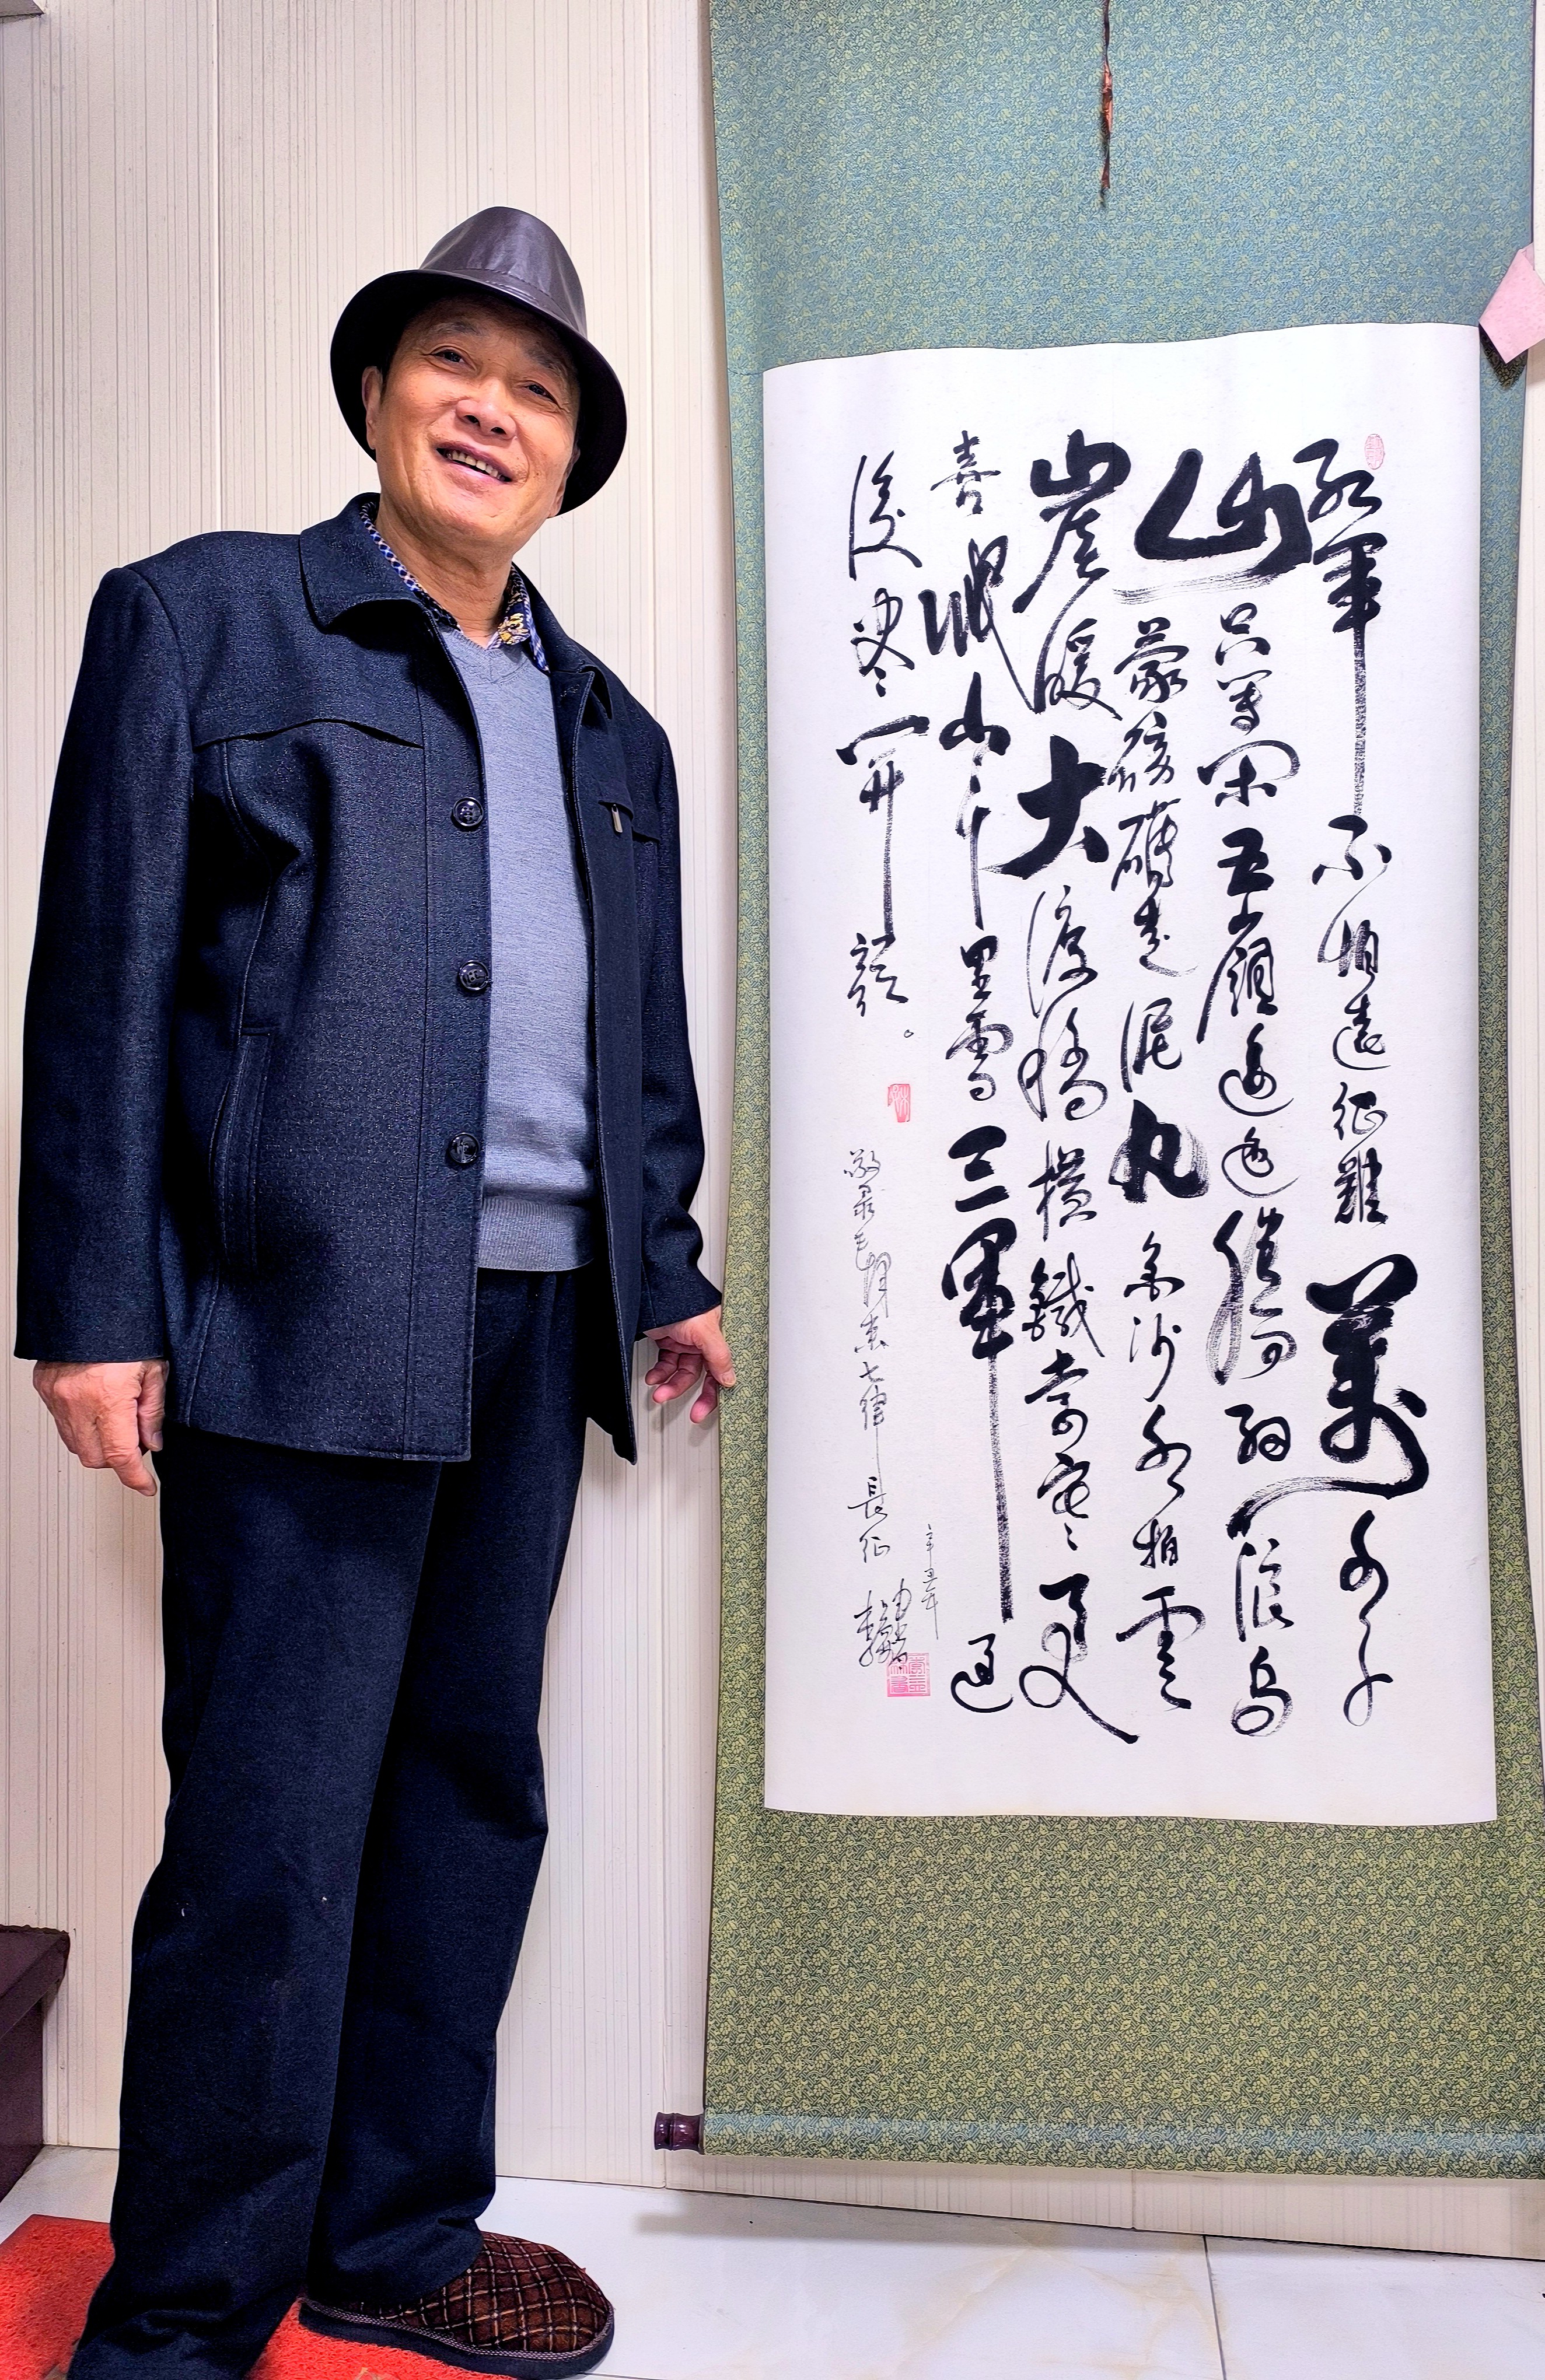 红軍不怕遠征難萬水千
山只等闲五嶺逶迤腾细浪烏
蒙磅礴走泥丸金沙水拍雲
崖暖大渡橋橫鐵索寒更
喜岷山千里雪三軍過
後尽開颜。
敬录毛泽东七律長征
辛丑年